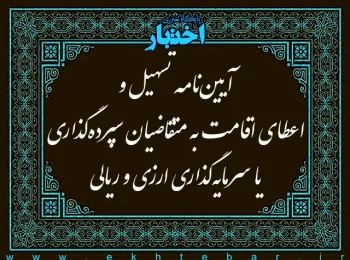 اختبار
آیین‌نامه تسهیل و
اعطای اقامت به متقاضیان سپرده‌گذاری
یا سرمایه‌گذاری ارزی و ریالی
www.ekhtebar.ir